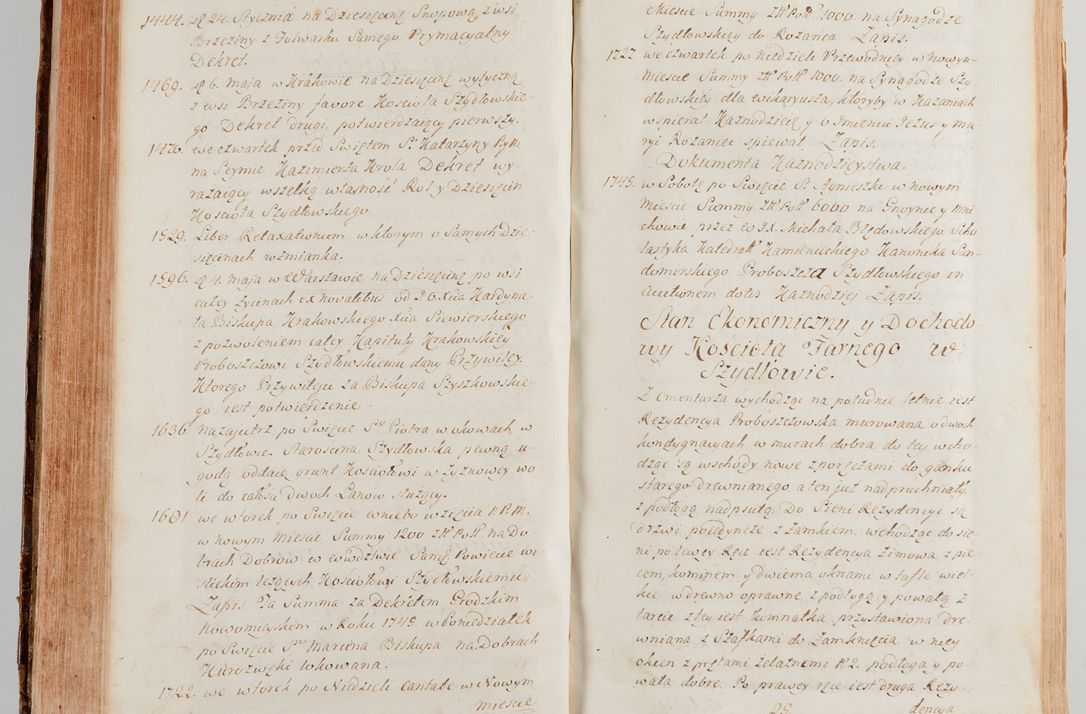 1444. d. 24. Stycznia na Dziesięcinę Snopową z wsi
Brzeziny z Folwarku Samego Prymacyalny
Dekret.
1469. d. 6. maja w Krakowie na Dziesięcinę wytyczną
z wsi Brzeziny favore Kościoła Szydłowskie-
go Dekret drugi, potwierdzaiący pierwszy.
1470. we czwartek przed Swiętem S. Katarzyny
na Seymie Kazimierza Krola Dekret wy-
rażaiący wszelką własność Rol y Dziesięcin
Kościoła Szydłowskiego.
1529. Liber Retaxationum w ktorym o Samych Dzie-
sięcinach wzmianka.
1596. d. 4. maja w Warszawie na Dziesięcinę po wsi
całey Zycinach ex novalibus od Xcia Kardyna-
ła Biskupa Krakowskiego Xcia Siewierskiego
z pozwoleniem całey Kapituły Krakowskiey
Proboszczowi Szydłowskiemu dany Przywiley.
Ktorego Przywileju za Biskupa Szyszkowskie-
go iest potwierdzenie.
1636. nazajutrz po Swięcie S. Piotra w okowach w
Szydłowie. Starościna Szydłowska pewną u-
godą oddaie grunt Kościołowi w Zyznowey wo-
li do całości dwoch Łanow służący.
1681. we wtorek po Swięcie wniebowzięcia N.P.M.
w nowym mieście Summy 1200 Zł Pol. na Do-
brach Dobrow w wiewodztwie Sand. Powiecie wi-
slickim leżących Kościołowi Szydłowskiemu
Zapis. Ta Summa za Dekretem Grodzkim
Nowomiyskim w Roku 1748. w Poniedziałek
po Swięcie S. Marcina Biskupa na Dobrach
Kurozwęki lokowana.
1722. we wtorek po Niedzieli Cantate w Nowym
mieście
Mieście Summy Zł Pol. 1000. na Synagodze
Szydłowskiey do Rożańca Zapis.
1727. we czwartek po Niedzieli Przewodniey w Nowym-
mieście Summy Zł Pol. 1000. na Synagodze Szy-
dłowskiey dla wikaryusza, ktoryby w Kazaniach
wspierał Kaznodzieię y o Imieniu Jezus y Ma-
ryi Rożaniec spiewał. Zapis.
Dokumenta Kaznodzieystwa.
1745. w Sobotę po Swięcie S. Agnieszki w nowym
mieście Summy Zł Pol. 6000. na Gnoynie y Mni-
chowie przez JX. Michała Błędowskiego Scho-
lastyka Katedral. Kamienieckiego Kanonika San-
domirskiego Proboszcza Szydłowskiego in
Auctionem dotis Kaznodziei Zapis.
Stan Ekonomiczny y Dochodo-
wy Kościoła Farnego w
Szydłowie.
Z Cmentarza wychodząc na południe letnie iest
Rezydencya Proboszczowska murowana o dwoch
kondygnacyach w murach dobra. do tey wcho-
dząc są wschody nowe z poręczami do ganku
starego drewnianego a ten już nadpruchniały
z podłogą nadpsutą. Do Sieni Rezydencyi są
drzwi poiedyncze z Zamkiem. wchodząc do sie-
ni po lewey Ręce iest Rezydencya zimowa z pie-
cem, kominem y dwiema oknami w tafle wiel-
kie w drewno oprawne z podłogą y powałą z
tarcic z tey iest Komnatka przystawiona dre-
wniana z Szafkami do Zamknięcia. w niey
okien z prętami żelaznemi N. 2. podłoga y po-
wała dobre. Po prawey ręce iest druga Rezy-
dencya